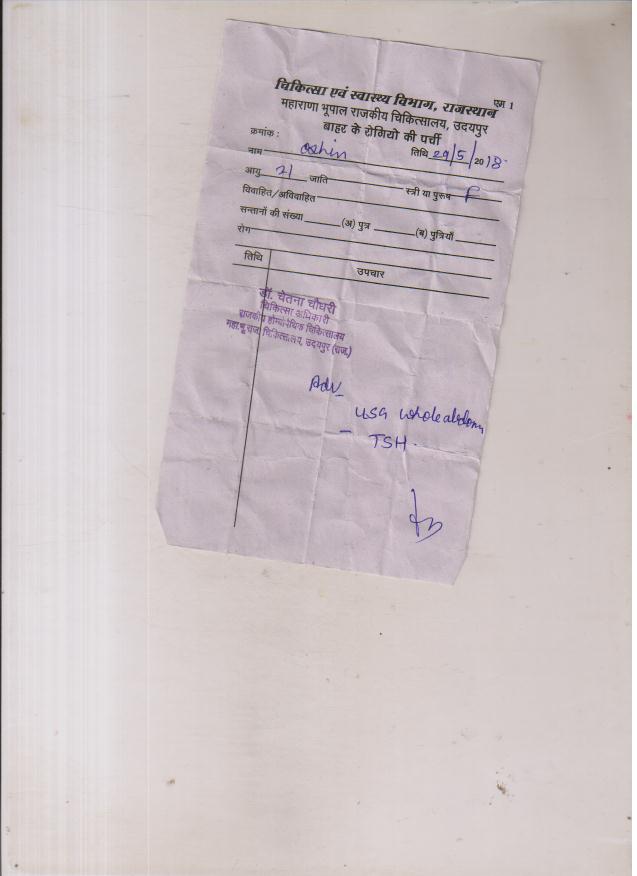 एम 1
चिकित्सा एवं स्वास्थ्य विभाग, राजस्थान
महाराणा भूपाल राजकीय चिकित्सालय, उदयपुर
बाहर के रोगियो की पर्ची
क्रमांक :
नाम oshin तिथि 29/5/2018
आयु 21 जाति स्त्री या पुरूष F
विवाहित/अविवाहित
सन्तानों की संख्या (अ) पुत्र (ब) पुत्रियाँ
रोग
तिथि उपचार
डॉ. चेतना चौधरी
चिकित्सा अधिकारी
राजकीय होम्योपैथिक चिकित्सालय
महा.भू.राज. चिकित्सालय, उदयपुर (राज.)
Adv
USG whole abdomen
- TSH